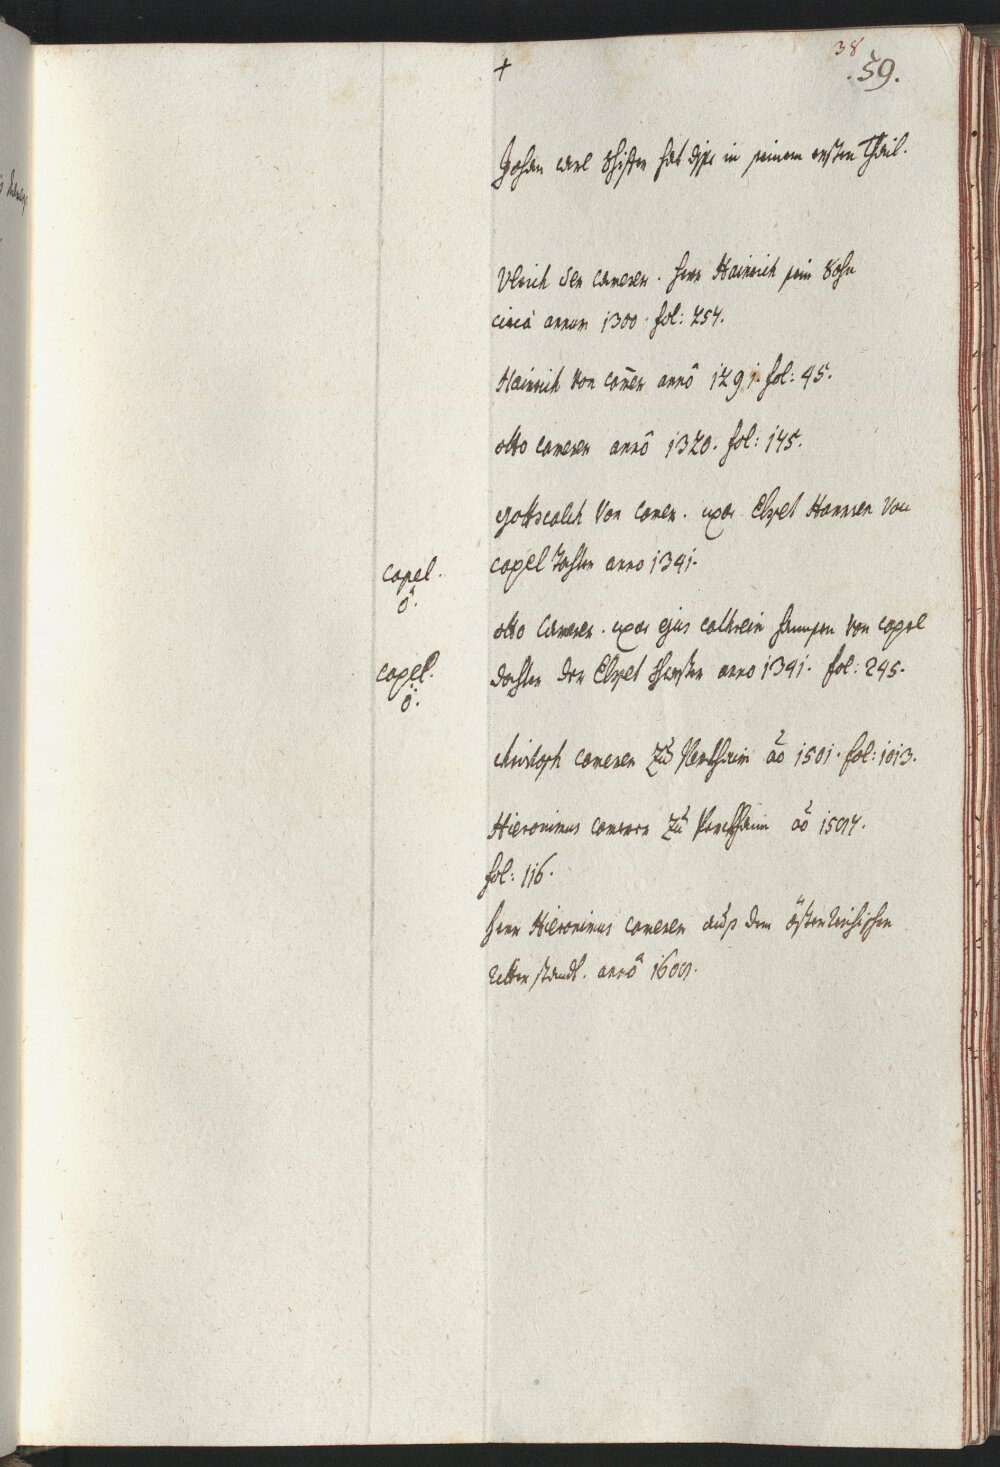 38
.59.
+
Johan carl Schifer hat diße in seinem ersten Thail.
Vlrich der camerer. Herr Hainrich sein Sohn
circà annum 1300. fol: 254.
Hainrich von com̄er annô 1291. fol: 45.
otto camerer annô 1320. fol: 145.
Gottscalch Von comer. uxor Elspet Hannsen Von
capel Tochter anno 1341.
capel.
ő.
otto Camerer. uxor ejus cathrein hannsen von capel
capel.
ö.
dochter der Elspet Schwester anno 1341. fol: 245.
christoph camerer Zu ao 1501. fol: 1013.
Hieronimus camerer Zu ao
fol: 116.
herr Hieronimus camerer auß dem österreichischen
Ritter standt. annô